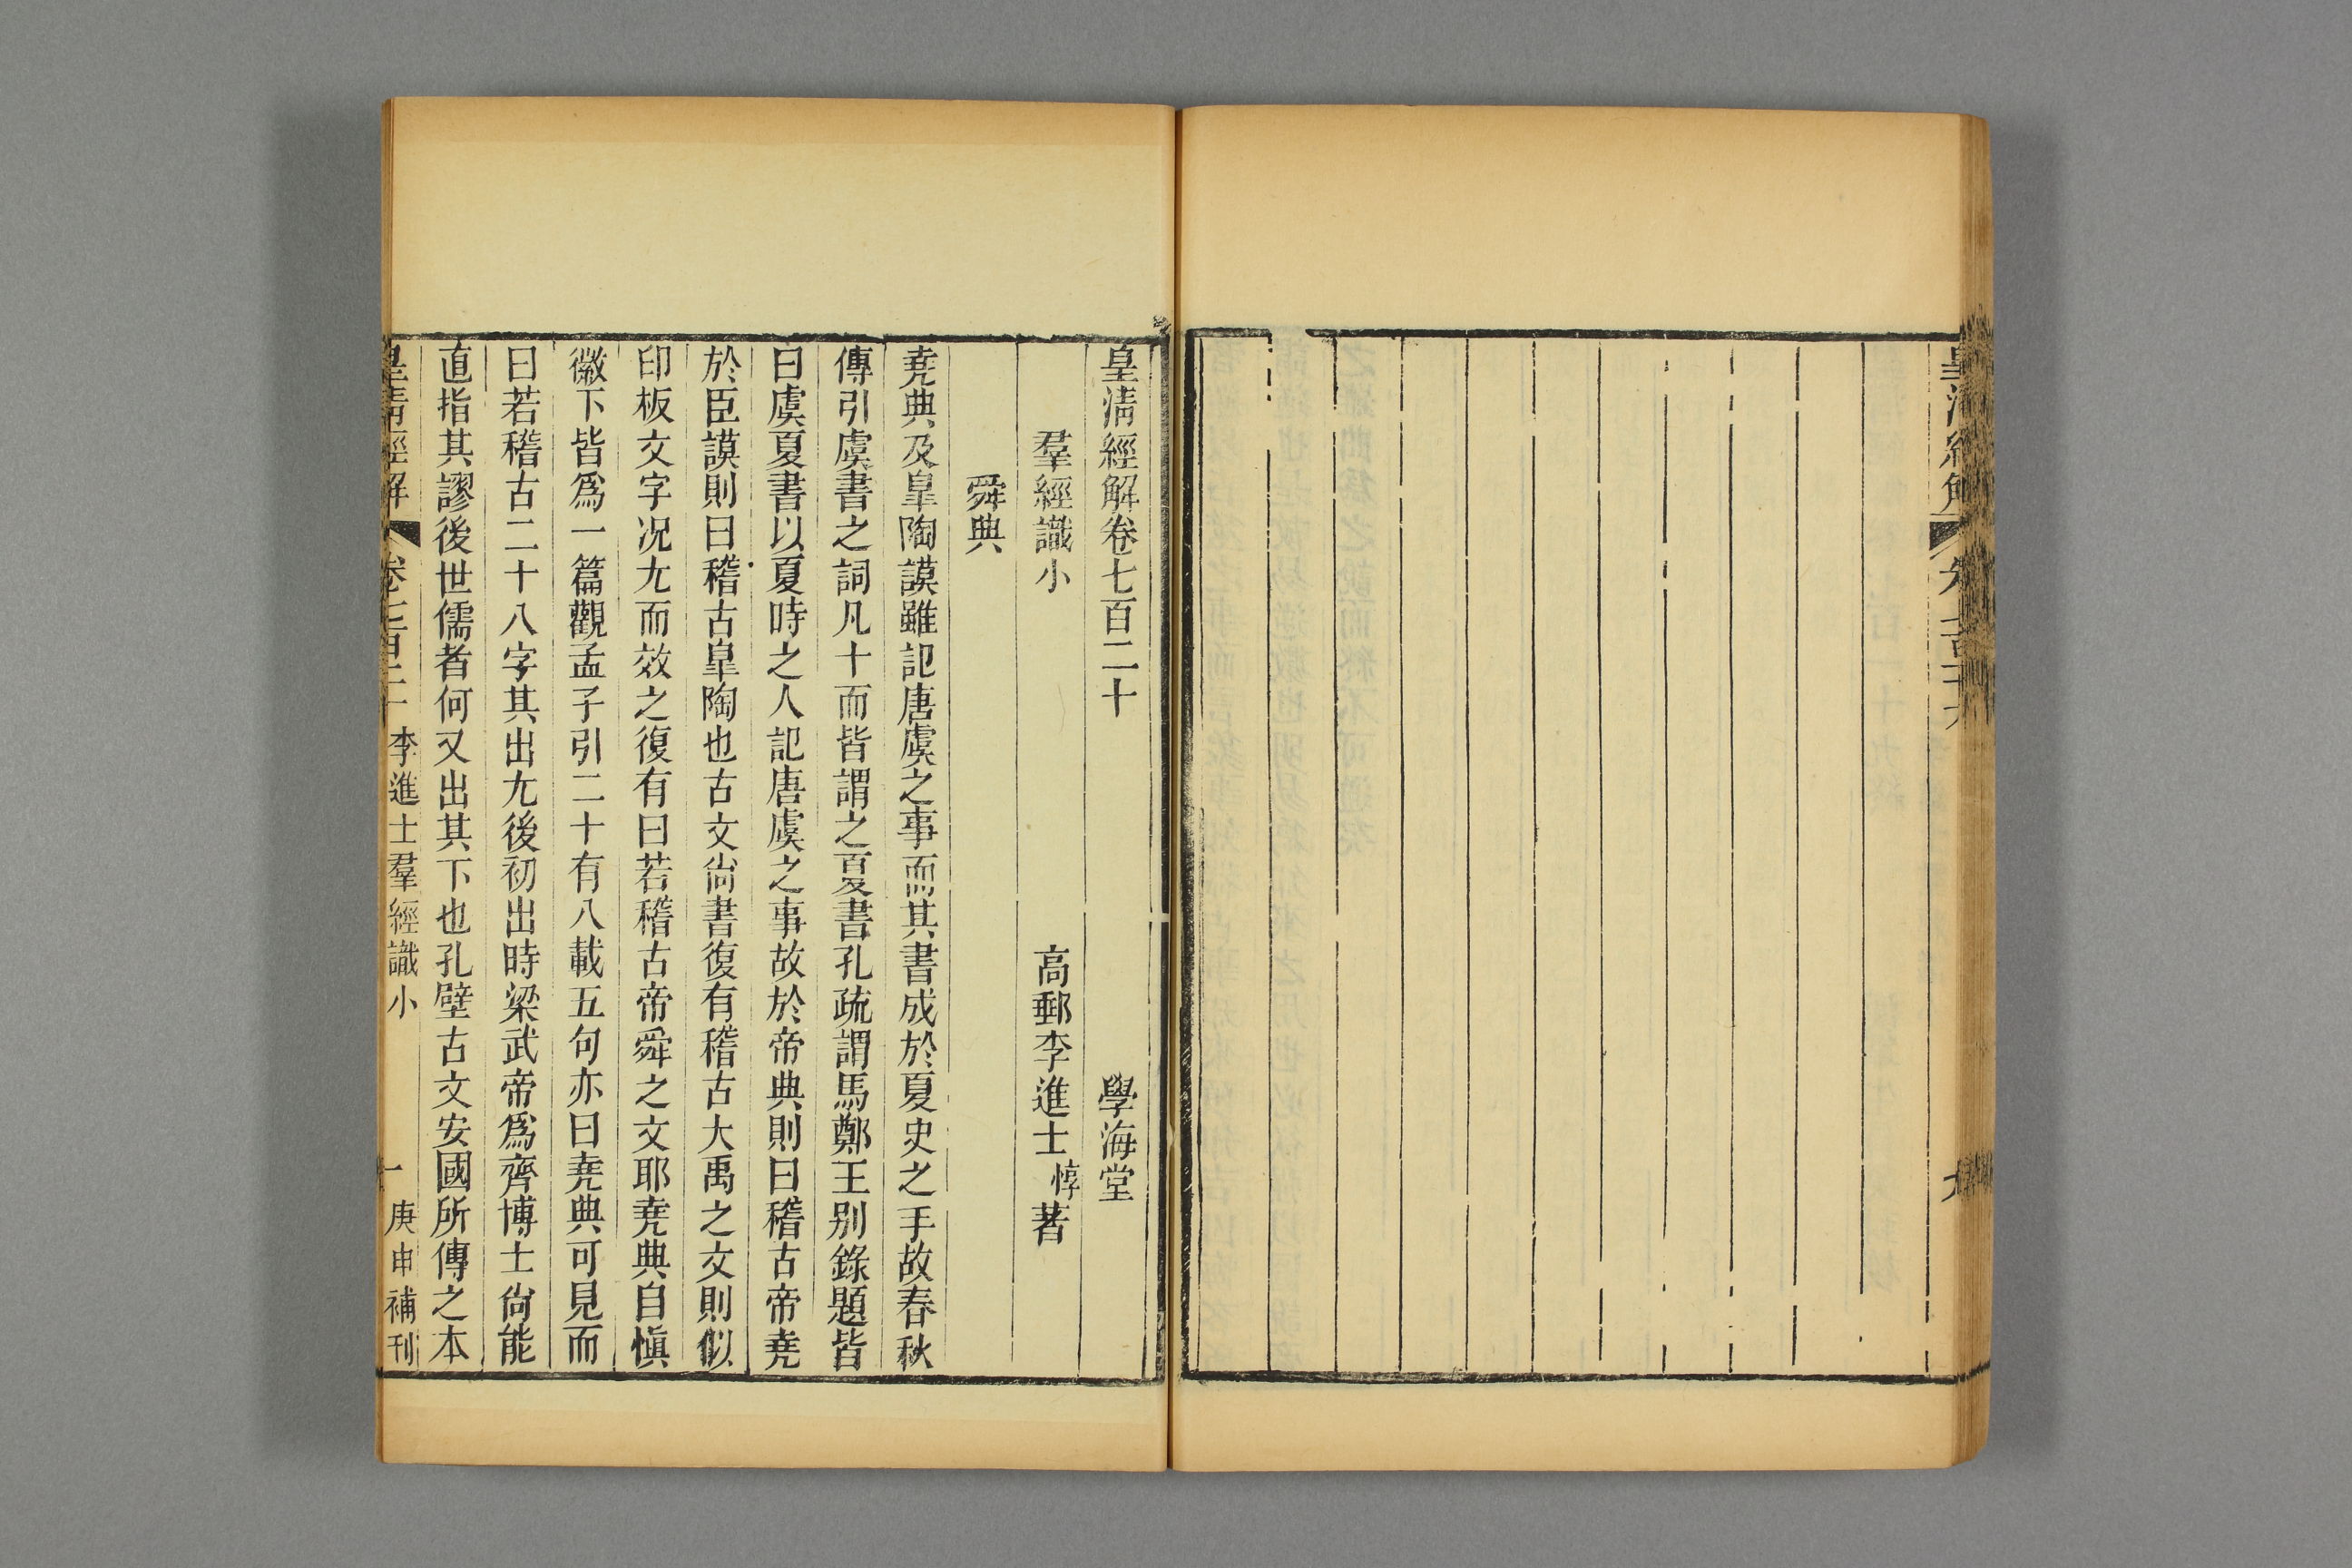 皇清經解卷七百二十 學海堂
羣經識小 高郵李進士惇著
舜典
堯典及皐陶謨雖記唐虞之事而其書成於夏史之手故春秋
傳引虞書之詞凡十而皆謂之夏書孔疏謂馬鄭王别錄題皆
曰虞夏書以夏時之人記唐虞之事故於帝典則曰稽古帝堯
於臣謨則曰稽古皐陶也古文尙書復有稽古大禹之文則似
印板文字况尢而效之復有曰若稽古帝舜之文耶堯典自愼
徽下皆爲一篇觀孟子引二十有八載五句亦曰堯典可見而
曰若稽古二十八字其出尢後初出時梁武帝爲齊博士尙能
直指其謬後世儒者何又出其下也孔壁古文安國所傳之本
皇清經解 卷七百二十 李進士羣經識小 一 庚申補刊